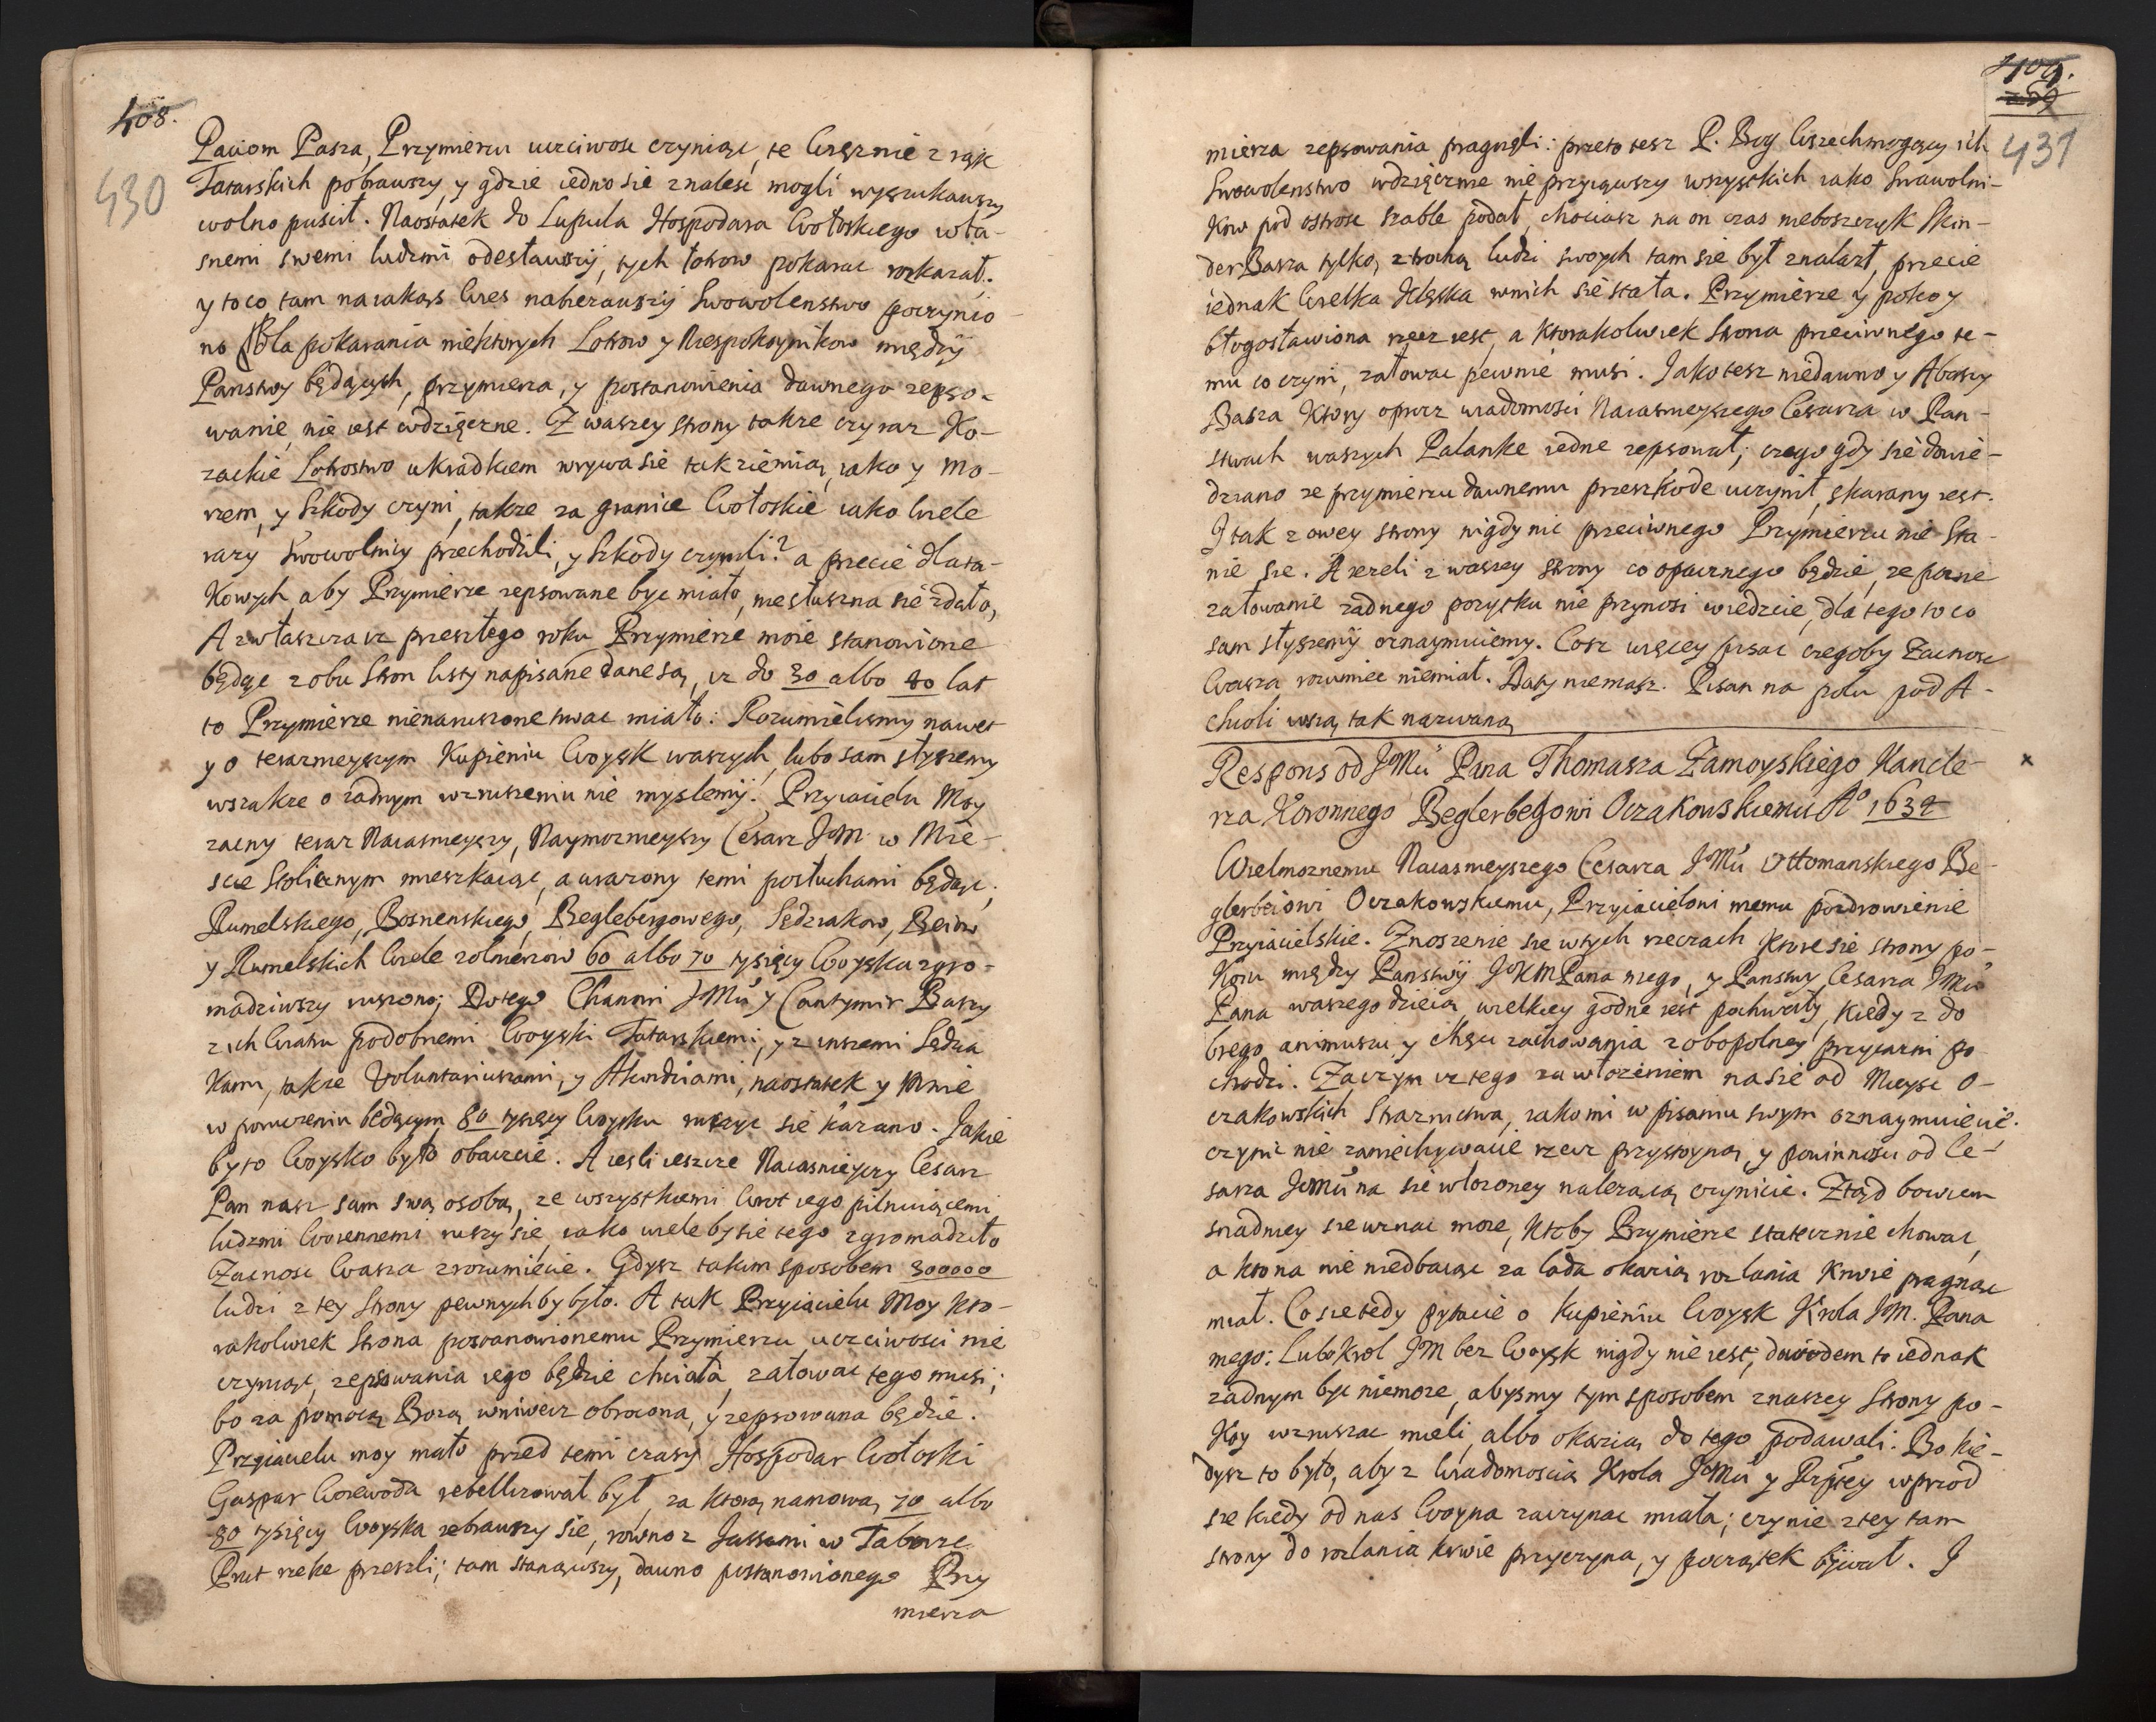 408.
430
Paciom Pasza, Przymierzu uczciwosc czyniąc, te Więznie z rąk
Tatarskich pobrawszy, y gdzie iedno sie znalesc mogli wyszukawszy
wolno puscił. Naostatek do Lupula Hospodara Wołoskiego wła-
snemi swemi ludzmi odesławszÿ, tych łotrow pokarac rozkazał.
y to co tam na iakąs Wies nabiezawszÿ Swowolenstwo poczynio-
no Dla pokarania niektorych Lotrow y Niespokoynikow międzÿ
Panstwy będących, przymierza, y postanowienia dawnego zepso-
wanie, nie iest wdzięczne. Z waszey strony takze czy raz Ko-
zackie Lotrostwo ukradkiem wrywa sie tak ziemią, iako y mo-
rzem, y Szkody czyni, takze za granice Wołoskie iako wiele
razy Swowolnicy przechodzili, y Szkody czynili? a przecie dla ta-
kowych, aby Przymierze zepsowane byc miało, niesłuszna sie zdało,
A zwłaszcza iz przeszłego roku Przymierze moie stanowione
będąc z obu Stron listy napisane dane są, iz do 30 albo 40 lat
to Przymierze nienaruszone trwac miało: Rozumielismy nawet
y o teraznieyszym Kupieniu Woysk waszych, lubo sam słyszemy
wszakze o zadnym wzruszeniu nie myslemÿ. Przyiacielu Moy
zacny teraz Naiasnieyszy, Naymoznieyszy Cesarz JM w Mie-
scie Stolicznym mieszkaiąc, a urazony temi posłuchami będąc,
Rumelskiego, Bosnenskiego, Beglebergowego, Sędziakow, Beiow
y Rumelskich Wiele zolnierzow 60 albo 70 tysięcy Woyska zgro-
madziwszy ruszono; Do tego Chanowi JMu y Cantymir Baszy
z ich Wiatru podobnemi Woyski Tatarskiemi, y z inszemi Sędzia
kami, takze Voluntariuszami, y Akindziami, naostatek y Mnie
w poruczeniu będącym 80 tysięcy Woysku ruszyc sie kazano. Jakie
by to Woysko było obaczcie. A iesli ieszcze Naiasnieyszy Cesarz
Pan nasz sam swą osobą, ze wszystkiemi Wrot iego pilnuiącemi
ludzmi Woiennemi ruszy sie, iako wiele by sie tego zgromadziło
Zacnosc Wasza zrozumiecie. Gdysz takim sposobem 300000
ludzi z tey Strony pewnychby było. A tak Przyiacielu Moy kto-
rakolwiek Strona postanowionemu Przymierzu uczciwosci nie
czyniąc, zepsowania iego będzie chciała, załowac tego musi;
bo za pomocą Bozą wniwecz obrocona, y zepsowana będzie.
Przyiacielu moy mało przed temi czasÿ Hospodar Wołoski
Gaspar Woiewoda rebellizował był, za ktorą namową 70 albo
80 tysięcy Woyska zebrawszy sie, rowno z Jassami w Taborze
Prut rzeke przeszli; tam stanąwszy, dawno postanowionego Przy
mierza
409.
431
mierza zepsowania pragnęli: przeto tesz P. Bog Wszechmogący ich
Swowolenstwo wdzięcznie nie przyiąwszy wszystkich iako Swawolni-
kow pod ostrose szable podał, chociasz na on czas nieboszczyk Skin-
der Basza tylko z trochą ludzi swoych tam sie był znalazł, przecie
iednak Wielka Klęska w nich sie stała. Przymierze y pokoy
błogosławiona rzecz iest, a ktorakolwiek Strona przeciwnego te-
mu co czyni, załowac pewnie musi. Jako tesz niedawno y Abaszy
Basza ktory oprocz wiadomosci Naiasnieyszego Cesarza w Pan-
stwach waszych Palanke iedne zepsował; czego gdy sie dowie-
dziano ze przymierzu dawnemu przeszkode uczynił, skarany iest.
I tak z owey strony nigdy nic przeciwnego Przymierzu nie Sta-
nie sie. A iezeli z waszey strony co opacznego będzie, ze pozne
załowanie zadnego pozytku nie przynosi wiedzcie, dla tego to co
sam słyszemÿ oznaymuiemy. Cosz więcey pisac czegoby Zacnosc
Wasza rozumiec niemiał. Daty niemasz. Pisan na polu pod A-
chioli wsią tak nazwaną
Respons od JMu Pana Thomasza Zamoyskiego Kancle-
rza Koronnego Beglerbegowi Oczakowskiemu Ao 1634
Wielmoznemu Naiasnieyszego Cesarza JMu Ottomanskiego Be-
glerbeiowi Oczakowskiemu, Przyiacielowi memu pozdrowienie
Przyiacielskie. Znoszenie sie w tych rzeczach ktore sie strony po-
koiu między Panstwÿ JKM Pana mego, y Panstwy Cesarza JMu
Pana waszego dzieią, wielkiey godne iest pochwały, kiedy z do
brego animuszu y chęci zachowania z obopolney przyiazni po
chodzi. Zaczym iz tego za włozeniem na sie od Mieysc O-
czakowskich Straznictwa, iako mi w pisaniu swym oznaymuiecie.
czynic nie zaniechywacie rzecz przystoyną, y powinnosci od Ce-
sarza JeoMu na sie wlozoney nalezącą czynicie. Ztąd bowiem
snadniey sie uznac moze, ktoby Przymierze statecznie chowac,
a kto na nie niedbaiąc za lada okazią rozlania Krwie pragnąc
miał. Co sie tedy pytacie o kupieniu Woysk Krola JM. Pana
mego: Lubo Krol JM bez Woysk nigdy nie iest, dowodem to iednak
zadnym byc niemoze, abysmy tym sposobem z naszey Strony po-
koy wzruszac mieli, albo okazią do tego podawali. Bo kie-
dysz to było, aby z Wiadomoscią Krola JMu y Rzptey wprzod
sie kiedy od nas Woyna zaczynac miała; czy nie z tey tam
strony do rozlania krwie przyczyna, y początek bÿwał. J